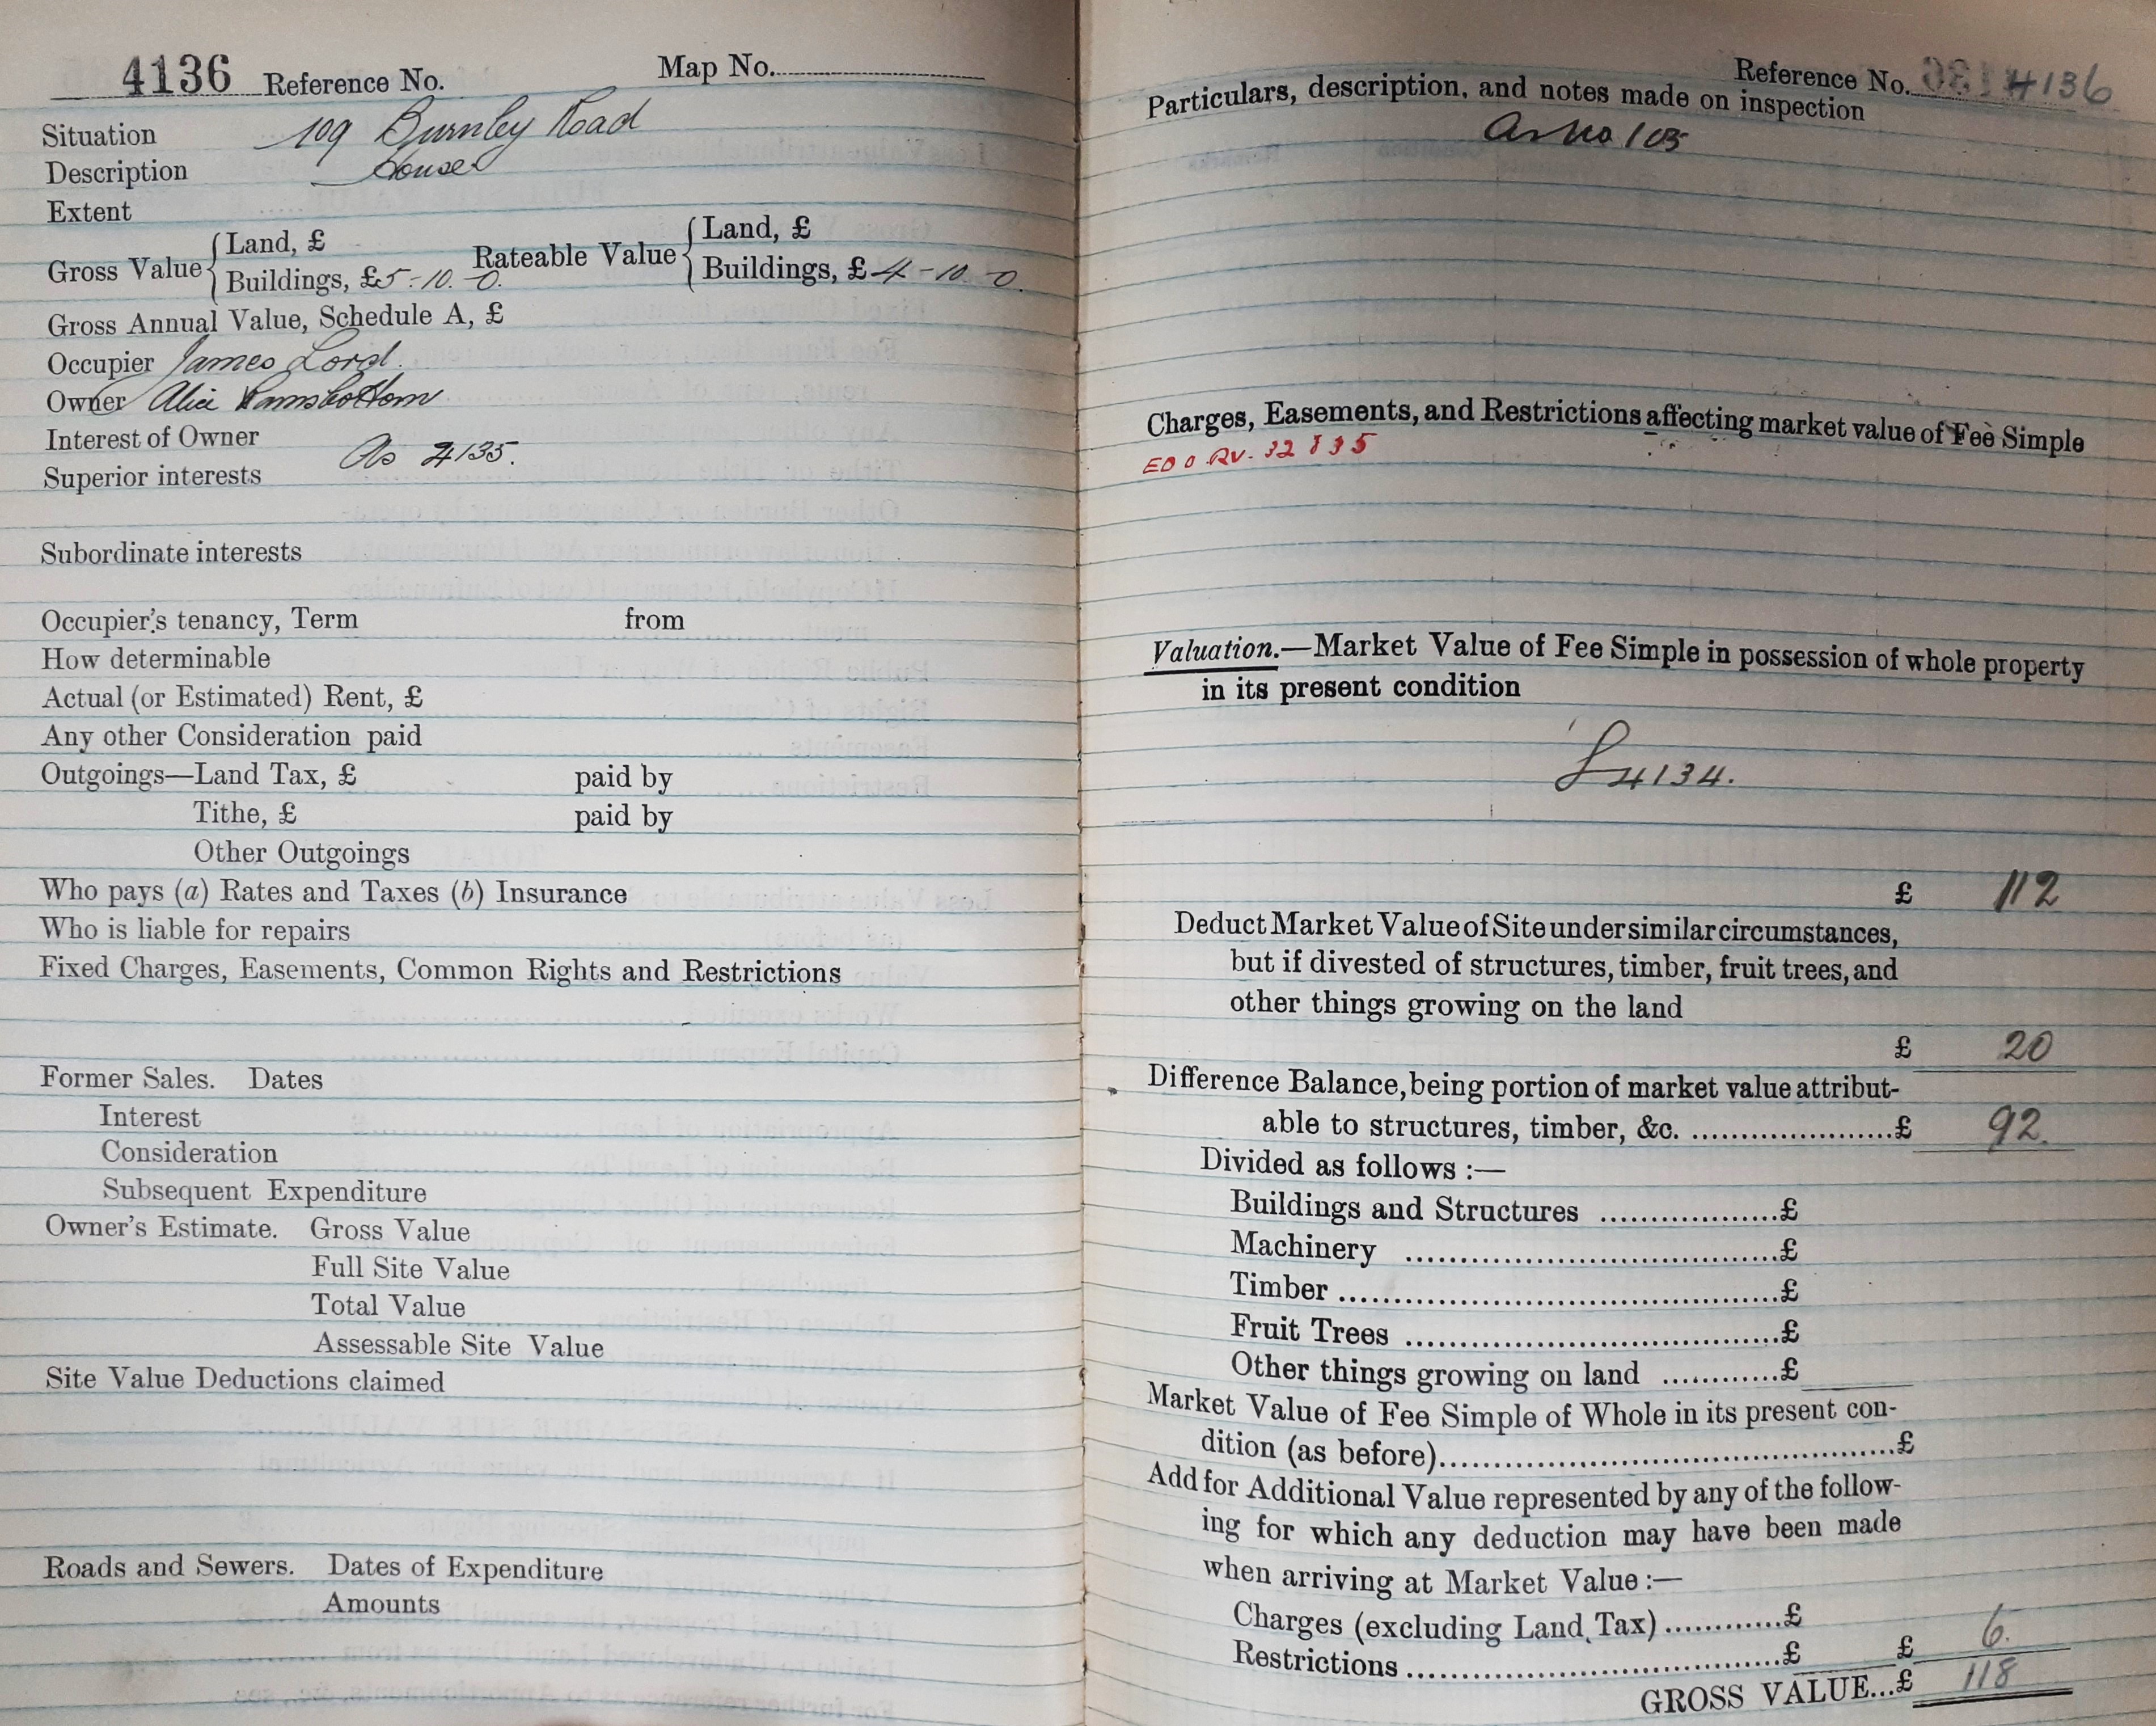 4136 Reference No. Map No.
Situation 109 Burnley Road
Description House
Extent
Gross Value { Land, £ Rateable Value { Land, £
Buildings, £5-10-0. Buildings, £4-10-0.
Gross Annual Value, Schedule A, £
Occupier James Lord.
Owner Alice Ramsbottom
Interest of Owner
As 4135.
Superior interests
Subordinate interests
Occupier's tenancy, Term from
How determinable
Actual (or Estimated) Rent, £
Any other Consideration paid
Outgoings—Land Tax, £ paid by
Tithe, £ paid by
Other Outgoings
Who pays (a) Rates and Taxes (b) Insurance
Who is liable for repairs
Fixed Charges, Easements, Common Rights and Restrictions
Former Sales. Dates
Interest
Consideration
Subsequent Expenditure
Owner's Estimate. Gross Value
Full Site Value
Total Value
Assessable Site Value
Site Value Deductions claimed
Roads and Sewers. Dates of Expenditure
Amounts
Reference No. 4136
Particulars, description, and notes made on inspection
As No 105
Charges, Easements, and Restrictions affecting market value of Fee Simple
32835
Valuation.—Market Value of Fee Simple in possession of whole property
in its present condition
4134.
£ 112
Deduct Market Value of Site under similar circumstances,
but if divested of structures, timber, fruit trees, and
other things growing on the land
£ 20
Difference Balance, being portion of market value attribut-
able to structures, timber, &c. ......................£ 92.
Divided as follows :—
Buildings and Structures ...................£
Machinery .......................................£
Timber .............................................£
Fruit Trees .......................................£
Other things growing on land ............£
Market Value of Fee Simple of Whole in its present con-
dition (as before)..............................................£
Add for Additional Value represented by any of the follow-
ing for which any deduction may have been made
when arriving at Market Value :—
Charges (excluding Land Tax) ............£
Restrictions .......................................£ £ 6.
GROSS VALUE...£ 118